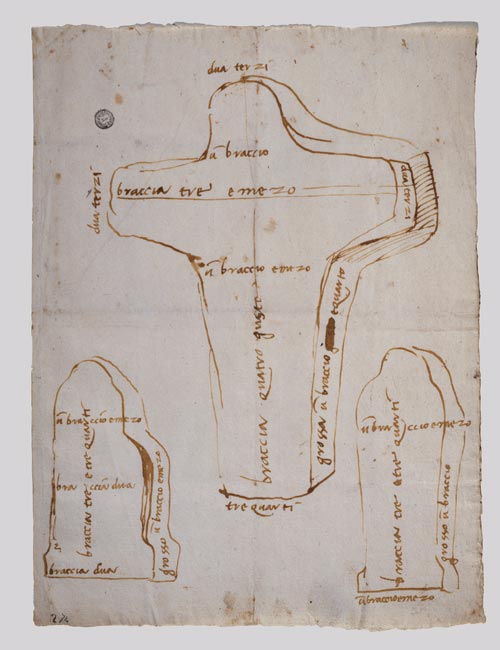 dua terzi
ũ braccio
braccia tre e mezo
dua terzi
dua terzi
ũ braccio e mezo
braccia quatro giuste
grossa ũ braccio e quarto
tre quarti
ũ braccio e mezo
braccia tre e tre quarti
braccia dua
ũ braccio e mezo
grosso
braccia dua
ũ braccio e mezo
braccia tre e tre quarti
grosso ũ braccio
ũ braccio e mezo